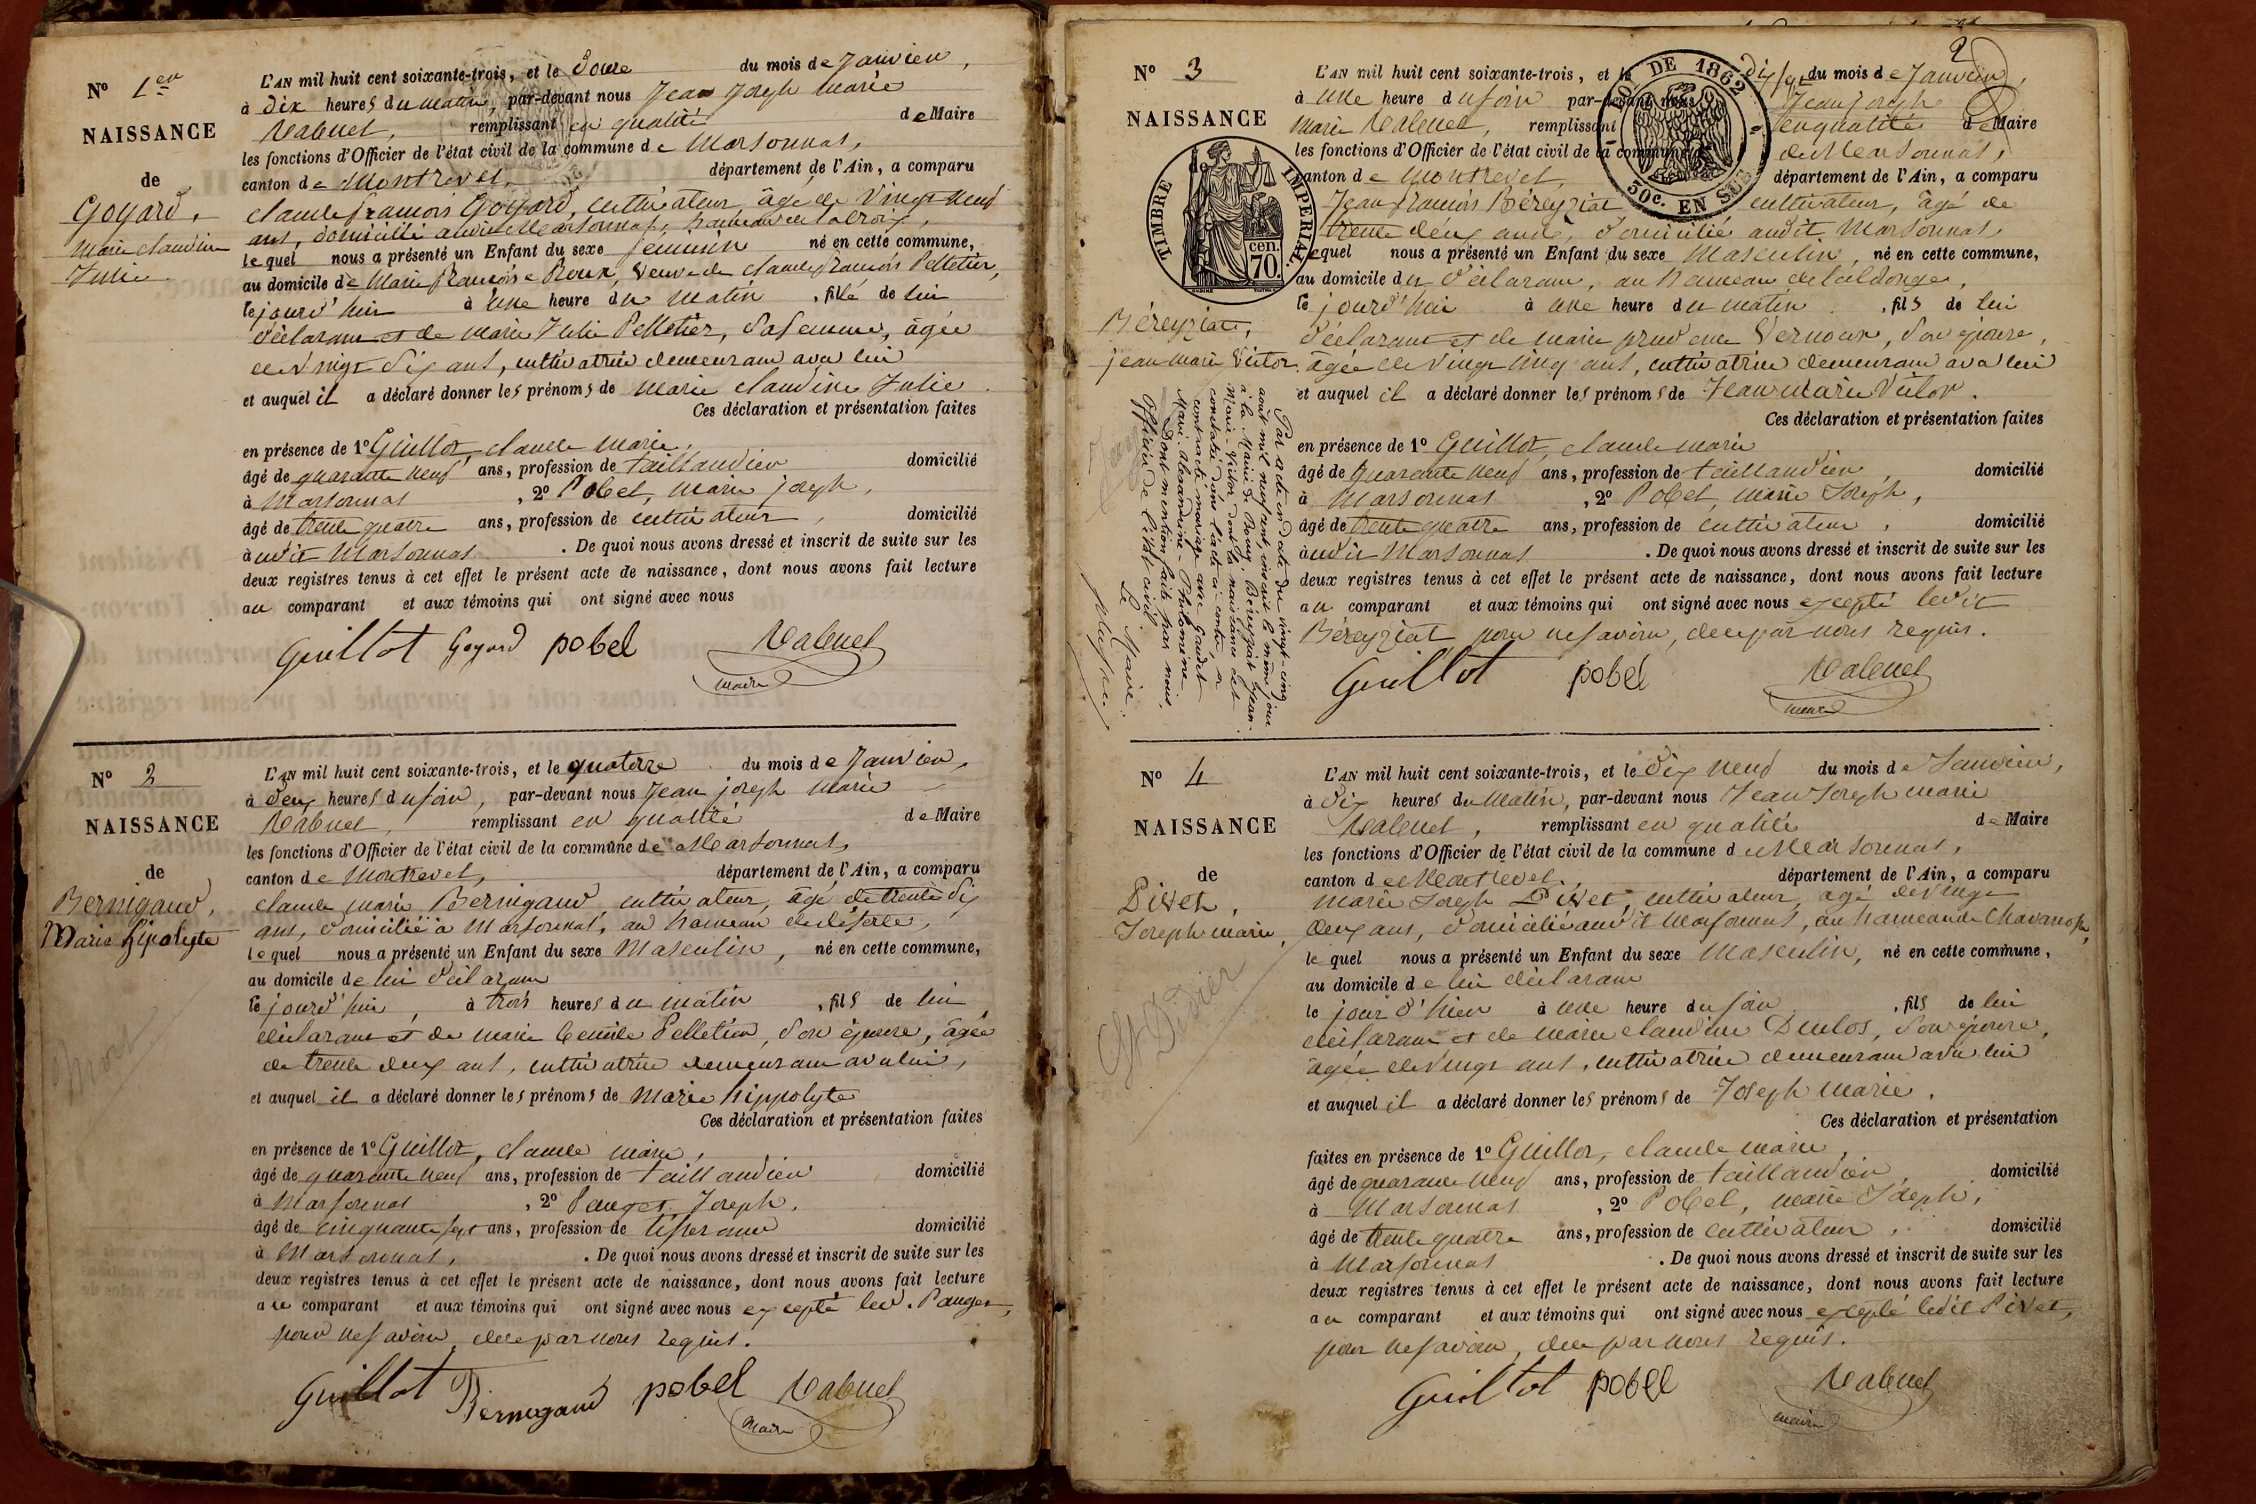 N° 1er
NAISSANCE
de
Goyard,
Marie Claudine
Julie
L'AN mil huit cent soixante-trois, et le douze du mois de Janvier,
à dix heures du matin, par-devant nous Jean Joseph Marie
remplissant en qualité de Maire
les fonctions d'Officier de l'état civil de la commune de Marsonnas,
canton de Montrevel, département de l'Ain, a comparu
Claude François Goyard, cultivateur, âgé de vingt neuf
ans, domicilié audit Marsonnas, hameau de la croix,
lequel nous a présenté un Enfant du sexe féminin né en cette commune,
au domicile de Marie Françoise Roux, veuve de Claude François Pelletier,
le jourd'hui à une heure du matin, fille de lui
déclarant et de Marie Julie Pelletier, sa femme, âgée
de vingt six ans, cultivatrice demeurant avec lui
et auquel il a déclaré donner les prénoms de Marie Claudine Julie
Ces déclaration et présentation faites
en présence de 1° Guillot, Claude Marie,
âgé de quarante neuf ans, profession de taillandier domicilié
à Marsonnas, 2° Pobel, Marie Joseph,
âgé de trente quatre ans, profession de cultivateur, domicilié
audit Marsonnas. De quoi nous avons dressé et inscrit de suite sur les
deux registres tenus à cet effet le présent acte de naissance, dont nous avons fait lecture
au comparant et aux témoins qui ont signé avec nous
Guillot Goyard pobel
maire
N° 2
NAISSANCE
de
Bernigaud,
Marie hipolyte
Moret
L'AN mil huit cent soixante-trois, et le quatorze du mois de Janvier,
à deux heures du soir, par-devant nous Jean Joseph Marie
remplissant en qualité de Maire
les fonctions d'Officier de l'état civil de la commune de Marsonnas,
canton de Montrevel, département de l'Ain, a comparu
Claude Marie Bernigaud cultivateur, âgé de trente six
ans, domicilié à Marsonnas, au hameau de
lequel nous a présenté un Enfant du sexe Masculin, né en cette commune,
au domicile de lui déclarant
le jourd'hui, à trois heures du matin, fils de lui
déclarant et de Marie Pelletier, son épouse, âgée
de trente deux ans, cultivatrice demeurant avec lui,
et auquel il a déclaré donner les prénoms de Marie hippolyte
Ces déclaration et présentation faites
en présence de 1° Guillot, Claude Marie,
âgé de quarante neuf ans, profession de taillandier domicilié
à Marsonnas, 2° Pauget, Joseph,
âgé de cinquante sept ans, profession de tisserand domicilié
à Marsonnas,. De quoi nous avons dressé et inscrit de suite sur les
deux registres tenus à cet effet le présent acte de naissance, dont nous avons fait lecture
au comparant et aux témoins qui ont signé avec nous excepté led. Pauget,
pour ne savoir, de ce par nous requis.
Guillot Bernigaud pobel
maire
2
N° 3
NAISSANCE
de
TIMBRE IMPERIAL
70 cen.
DE 1862
50c. EN SUS
Béreyziat,
Jean Marie Victor
L'AN mil huit cent soixante-trois, et le dix sept du mois de Janvier,
à une heure du soir par-devant nous Jean Joseph
Marie remplissant en qualité de Maire
les fonctions d'Officier de l'état civil de la commune de Marsonnas,
canton de Montrevel, département de l'Ain, a comparu
Jean François Béreyziat cultivateur, âgé de
trente deux ans, domicilié audit Marsonnas,
lequel nous a présenté un Enfant du sexe Masculin, né en cette commune,
au domicile du déclarant, au hameau de
le jourd'hui à une heure du matin, fils de lui
déclarant et de Marie Vernoux, son épouse,
âgée de vingt cinq ans, cultivatrice demeurant avec lui
et auquel il a déclaré donner les prénoms de Jean Marie Victor.
Ces déclaration et présentation faites
en présence de 1° Guillot, Claude Marie
âgé de quarante neuf ans, profession de taillandier, domicilié
à Marsonnas, 2° Pobel, Marie Joseph,
âgé de trente quatre ans, profession de cultivateur, domicilié
audit Marsonnas. De quoi nous avons dressé et inscrit de suite sur les
deux registres tenus à cet effet le présent acte de naissance, dont nous avons fait lecture
au comparant et aux témoins qui ont signé avec nous excepté ledit
Béreyziat pour ne savoir, de ce par nous requis.
Guillot pobel
maire
Par acte en date du vingt-cinq
août mil neuf cent inscrit le même jour
à la Mairie de Bourg Béreyziat Jean
Marie-Victor dont la naissance est
constatée dans l'acte ci-contre, a
contracté mariage avec Gaudet
Marie-Alexandrine-Philomène.
Dont mention faite par nous,
Officier de l'état civil,
Le Maire:
N° 4
NAISSANCE
de
Pivet,
Joseph Marie,
St Didier
L'AN mil huit cent soixante-trois, et le dix neuf du mois de Janvier,
à dix heures du matin, par-devant nous Jean Joseph Marie
remplissant en qualité de Maire
les fonctions d'Officier de l'état civil de la commune de Marsonnas,
canton de Montrevel, département de l'Ain, a comparu
Marie Joseph Pivet, cultivateur, âgé de vingt
deux ans, domicilié audit Marsonnas, au hameau de
lequel nous a présenté un Enfant du sexe Masculin, né en cette commune,
au domicile de lui déclarant
le jour d'hier à une heure du soir, fils de lui
déclarant et de Marie Claudine Duclos, son épouse,
âgée de vingt ans, cultivatrice demeurant avec lui
et auquel il a déclaré donner les prénoms de Joseph Marie.
Ces déclaration et présentation
faites en présence de 1° Guillot, Claude Marie,
âgé de quarante neuf ans, profession de taillandier, domicilié
à Marsonnas, 2° Pobel, Marie Joseph,
âgé de trente quatre ans, profession de cultivateur, domicilié
à Marsonnas. De quoi nous avons dressé et inscrit de suite sur les
deux registres tenus à cet effet le présent acte de naissance, dont nous avons fait lecture
au comparant et aux témoins qui ont signé avec nous excepté ledit Pivet,
pour ne savoir, de ce par nous requis.
Guillot pobel
maire